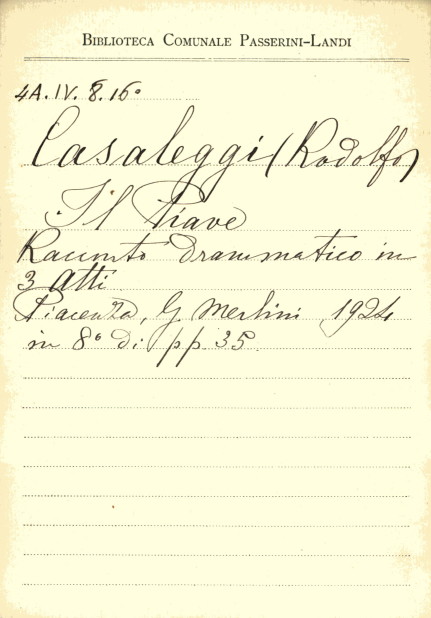 BIBLIOTECA COMUNALE PASSERINI-LANDI
4A.IV.8.16°
Casaleggi (Rodolfo)
Il Piave
Racconto drammatico in
3 atti
Piacenza, G Merlini 1924
in 8° di pp 35.